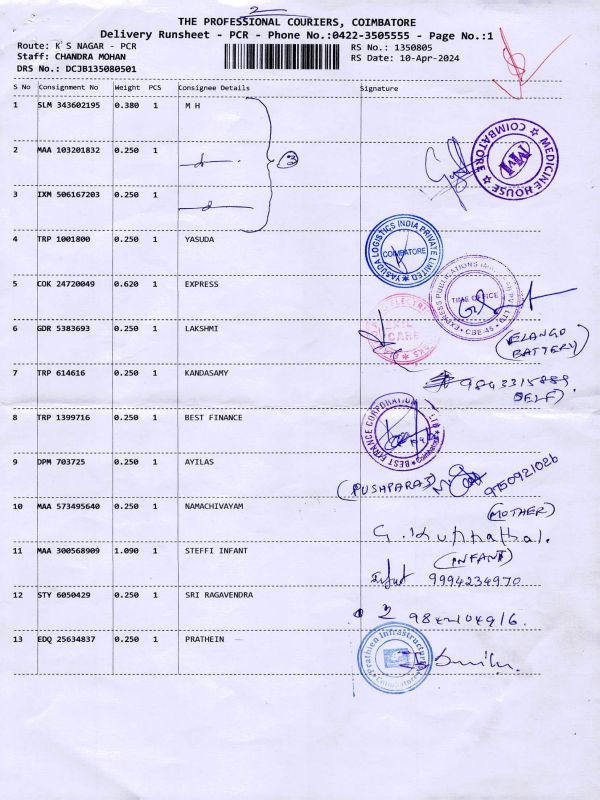 2
THE PROFESSIONAL COURIERS, COIMBATORE
Delivery Runsheet - PCR - Phone No.:0422-3505555 - Page No.:1
Route: K S NAGAR - PCR
RS No.: 1350805
Staff: CHANDRA MOHAN
RS Date: 10-Apr-2024
DRS No.: DCJB135080501
S No Consignment No Weight PCS Consignee Details Signature
1 SLM 343602195 0.380 1 M H
COIMBATORE ★ MEDICINE HOUSE ★ MM
2 MAA 103201832 0.250 1
3
3 IXM 506167203 0.250 1
4 TRP 1001800 0.250 1 YASUDA
YASUDA LOGISTICS INDIA PRIVATE LIMITED COIMBATORE
5 COK 24720049 0.620 1 EXPRESS
EXPRESS PUBLICATIONS TIME OFFICE CBE-45
6 GDR 5383693 0.250 1 LAKSHMI
CARE
(ELANGO
BATTERY)
7 TRP 614616 0.250 1 KANDASAMY
9843315889
8 TRP 1399716 0.250 1 BEST FINANCE
BEST FINANCE CORPORATION LTD Coimbatore
9 DPM 703725 0.250 1 AYILAS
(PUSHPARAJ) 9150921026
10 MAA 573495640 0.250 1 NAMACHIVAYAM
(MOTHER)
11 MAA 300568909 1.090 1 STEFFI INFANT
(INFANT)
9994234970
12 STY 6050429 0.250 1 SRI RAGAVENDRA
13 EDQ 25634837 0.250 1 PRATHEIN
Prathien Infrastructure Coimbatore